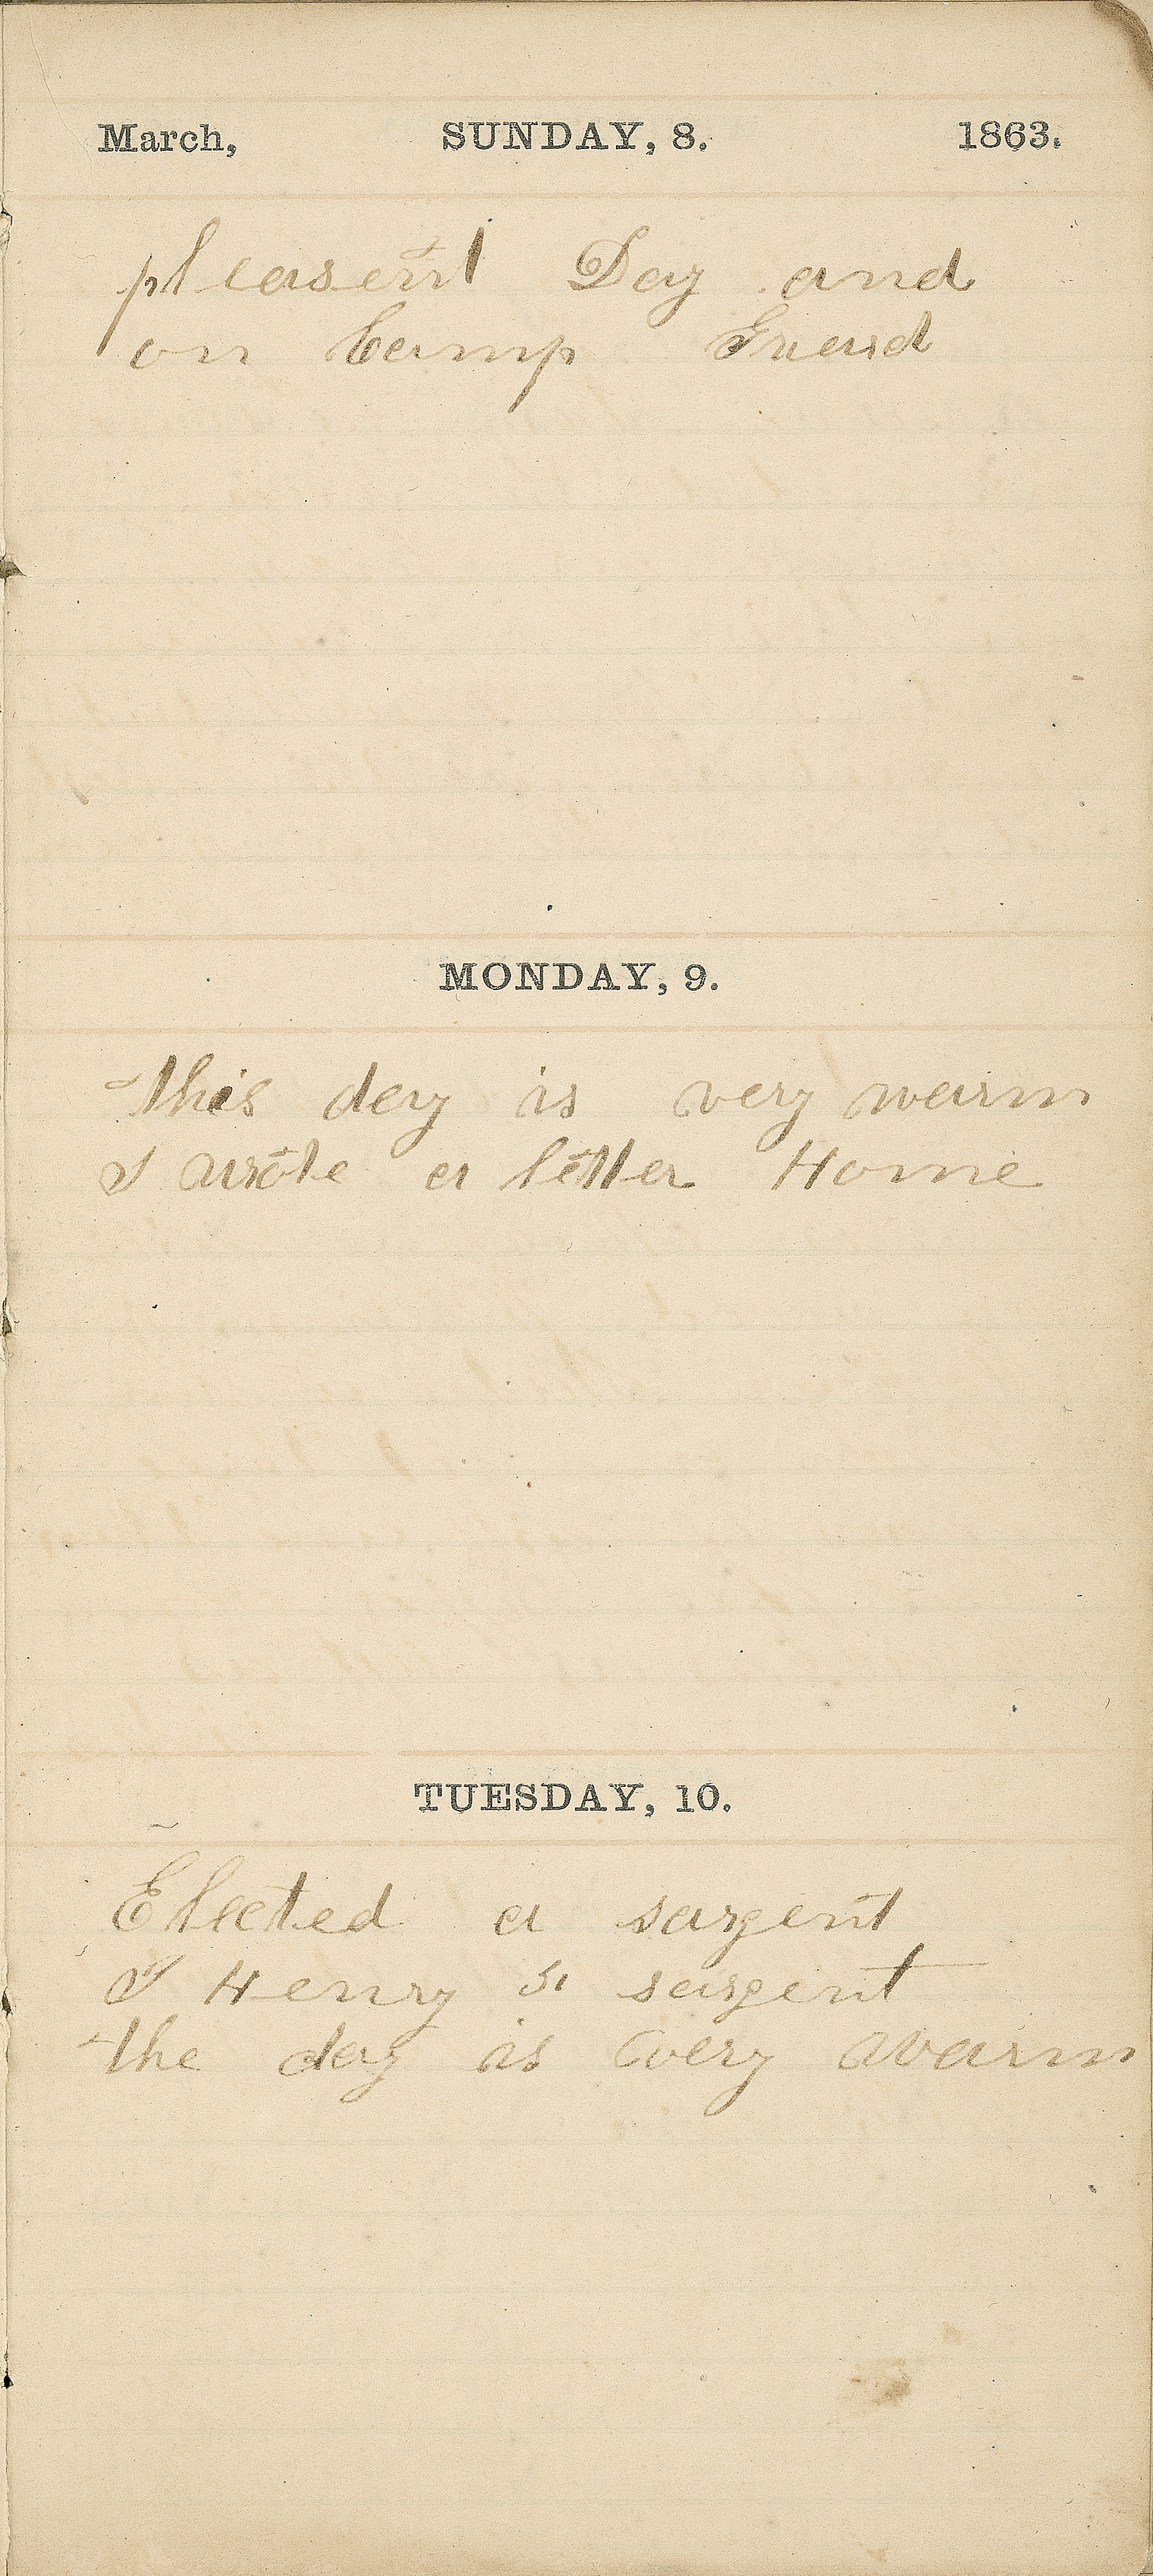 March, SUNDAY, 8. 1863.
pleasent Day and
on Camp Guard
MONDAY, 9.
this day is very warm
I wrote a letter Home
TUESDAY, 10.
Elected a sargent
J Henry 51 sargent
the day is very warm